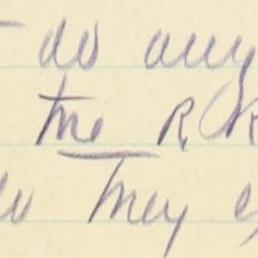 do any
the R.R
do they